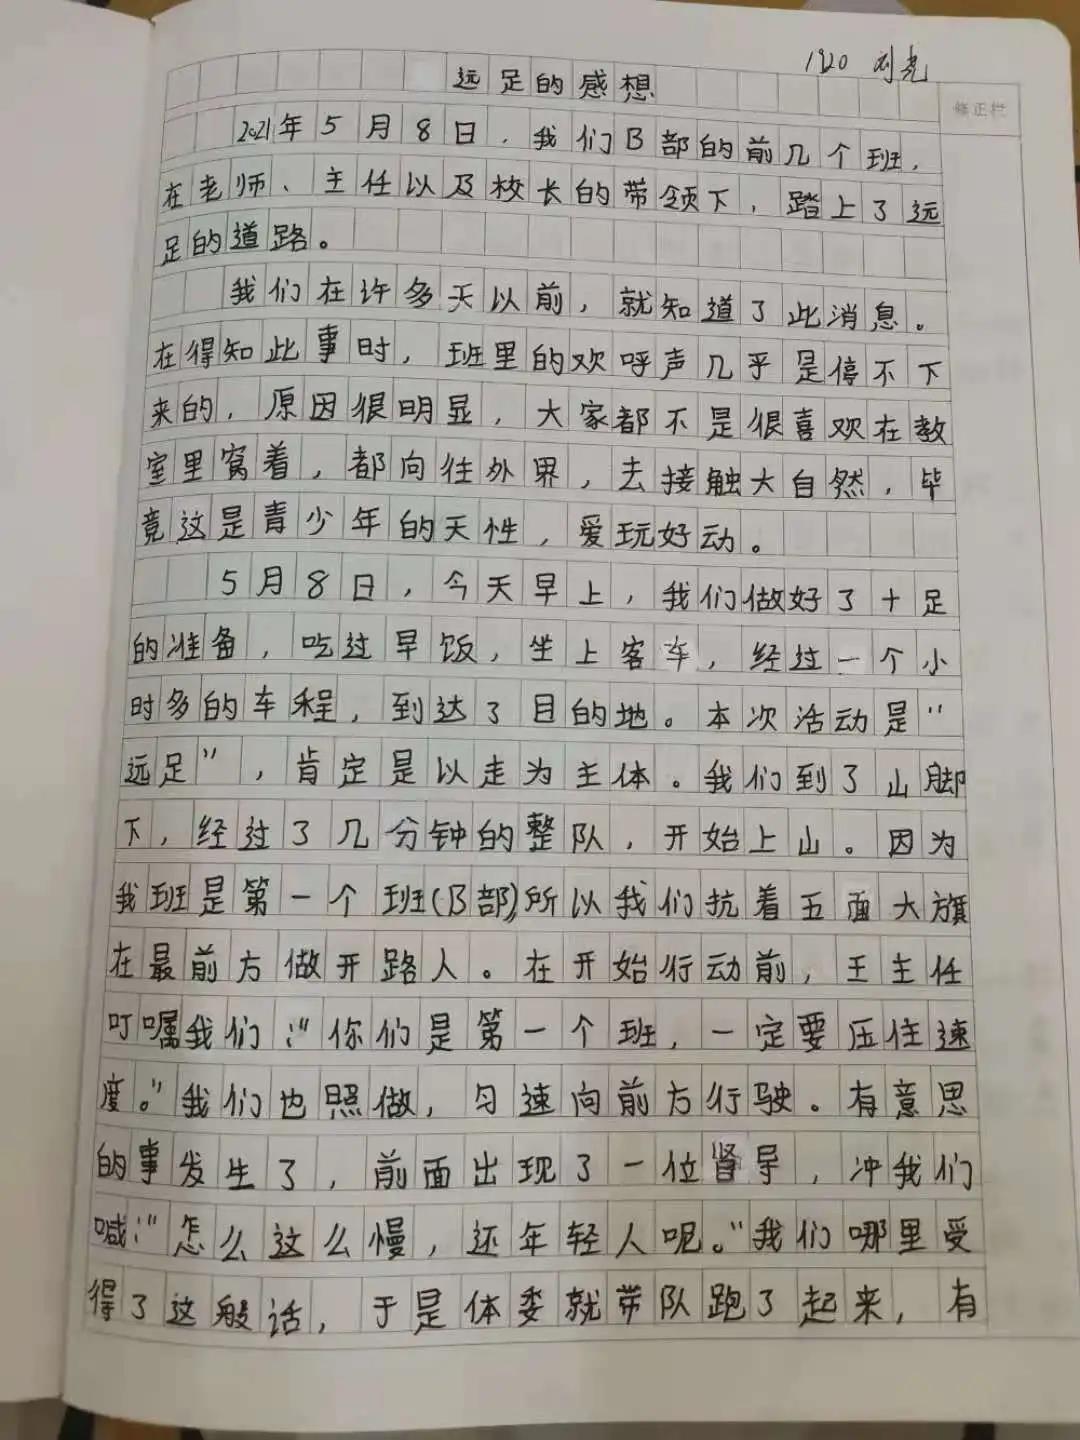 1920 刘尧
远足的感想
修正栏
2021年5月8日，我们B部的前几个班，
在老师、主任以及校长的带领下，踏上了远
足的道路。
我们在许多天以前，就知道了此消息。
在得知此事时，班里的欢呼声几乎是停不下
来的，原因很明显，大家都不是很喜欢在教
室里窝着，都向往外界，去接触大自然，毕
竟这是青少年的天性，爱玩好动。
5月8日，今天早上，我们做好了十足
的准备，吃过早饭，坐上客车，经过一个小
时多的车程，到达了目的地。本次活动是“
远足”，肯定是以走为主体。我们到了山脚
下，经过了几分钟的整队，开始上山。因为
我班是第一个班(B部),所以我们抗着五面大旗
在最前方做开路人。在开始行动前，王主任
叮嘱我们：“你们是第一个班，一定要压住速
度。”我们也照做，匀速向前方行驶。有意思
的事发生了，前面出现了一位督导，冲我们
喊：“怎么这么慢，还年轻人呢。”我们哪里受
得了这般话，于是体委就带队跑了起来，有